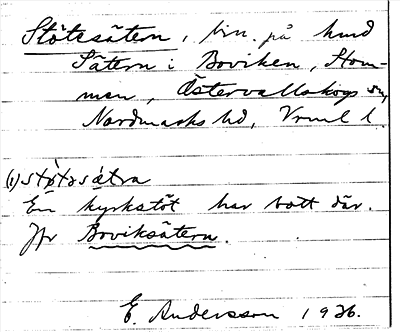 Stötesätern, bin. på hmd
Sätern i Boviken, Hom-
men, Östervallskogs sn,
Nordmarks hd, Vrml l.
(i) støtəsa̍tra
En kyrkstöt har bott där.
Jfr Boviksätern.
E. Andersson 1936.